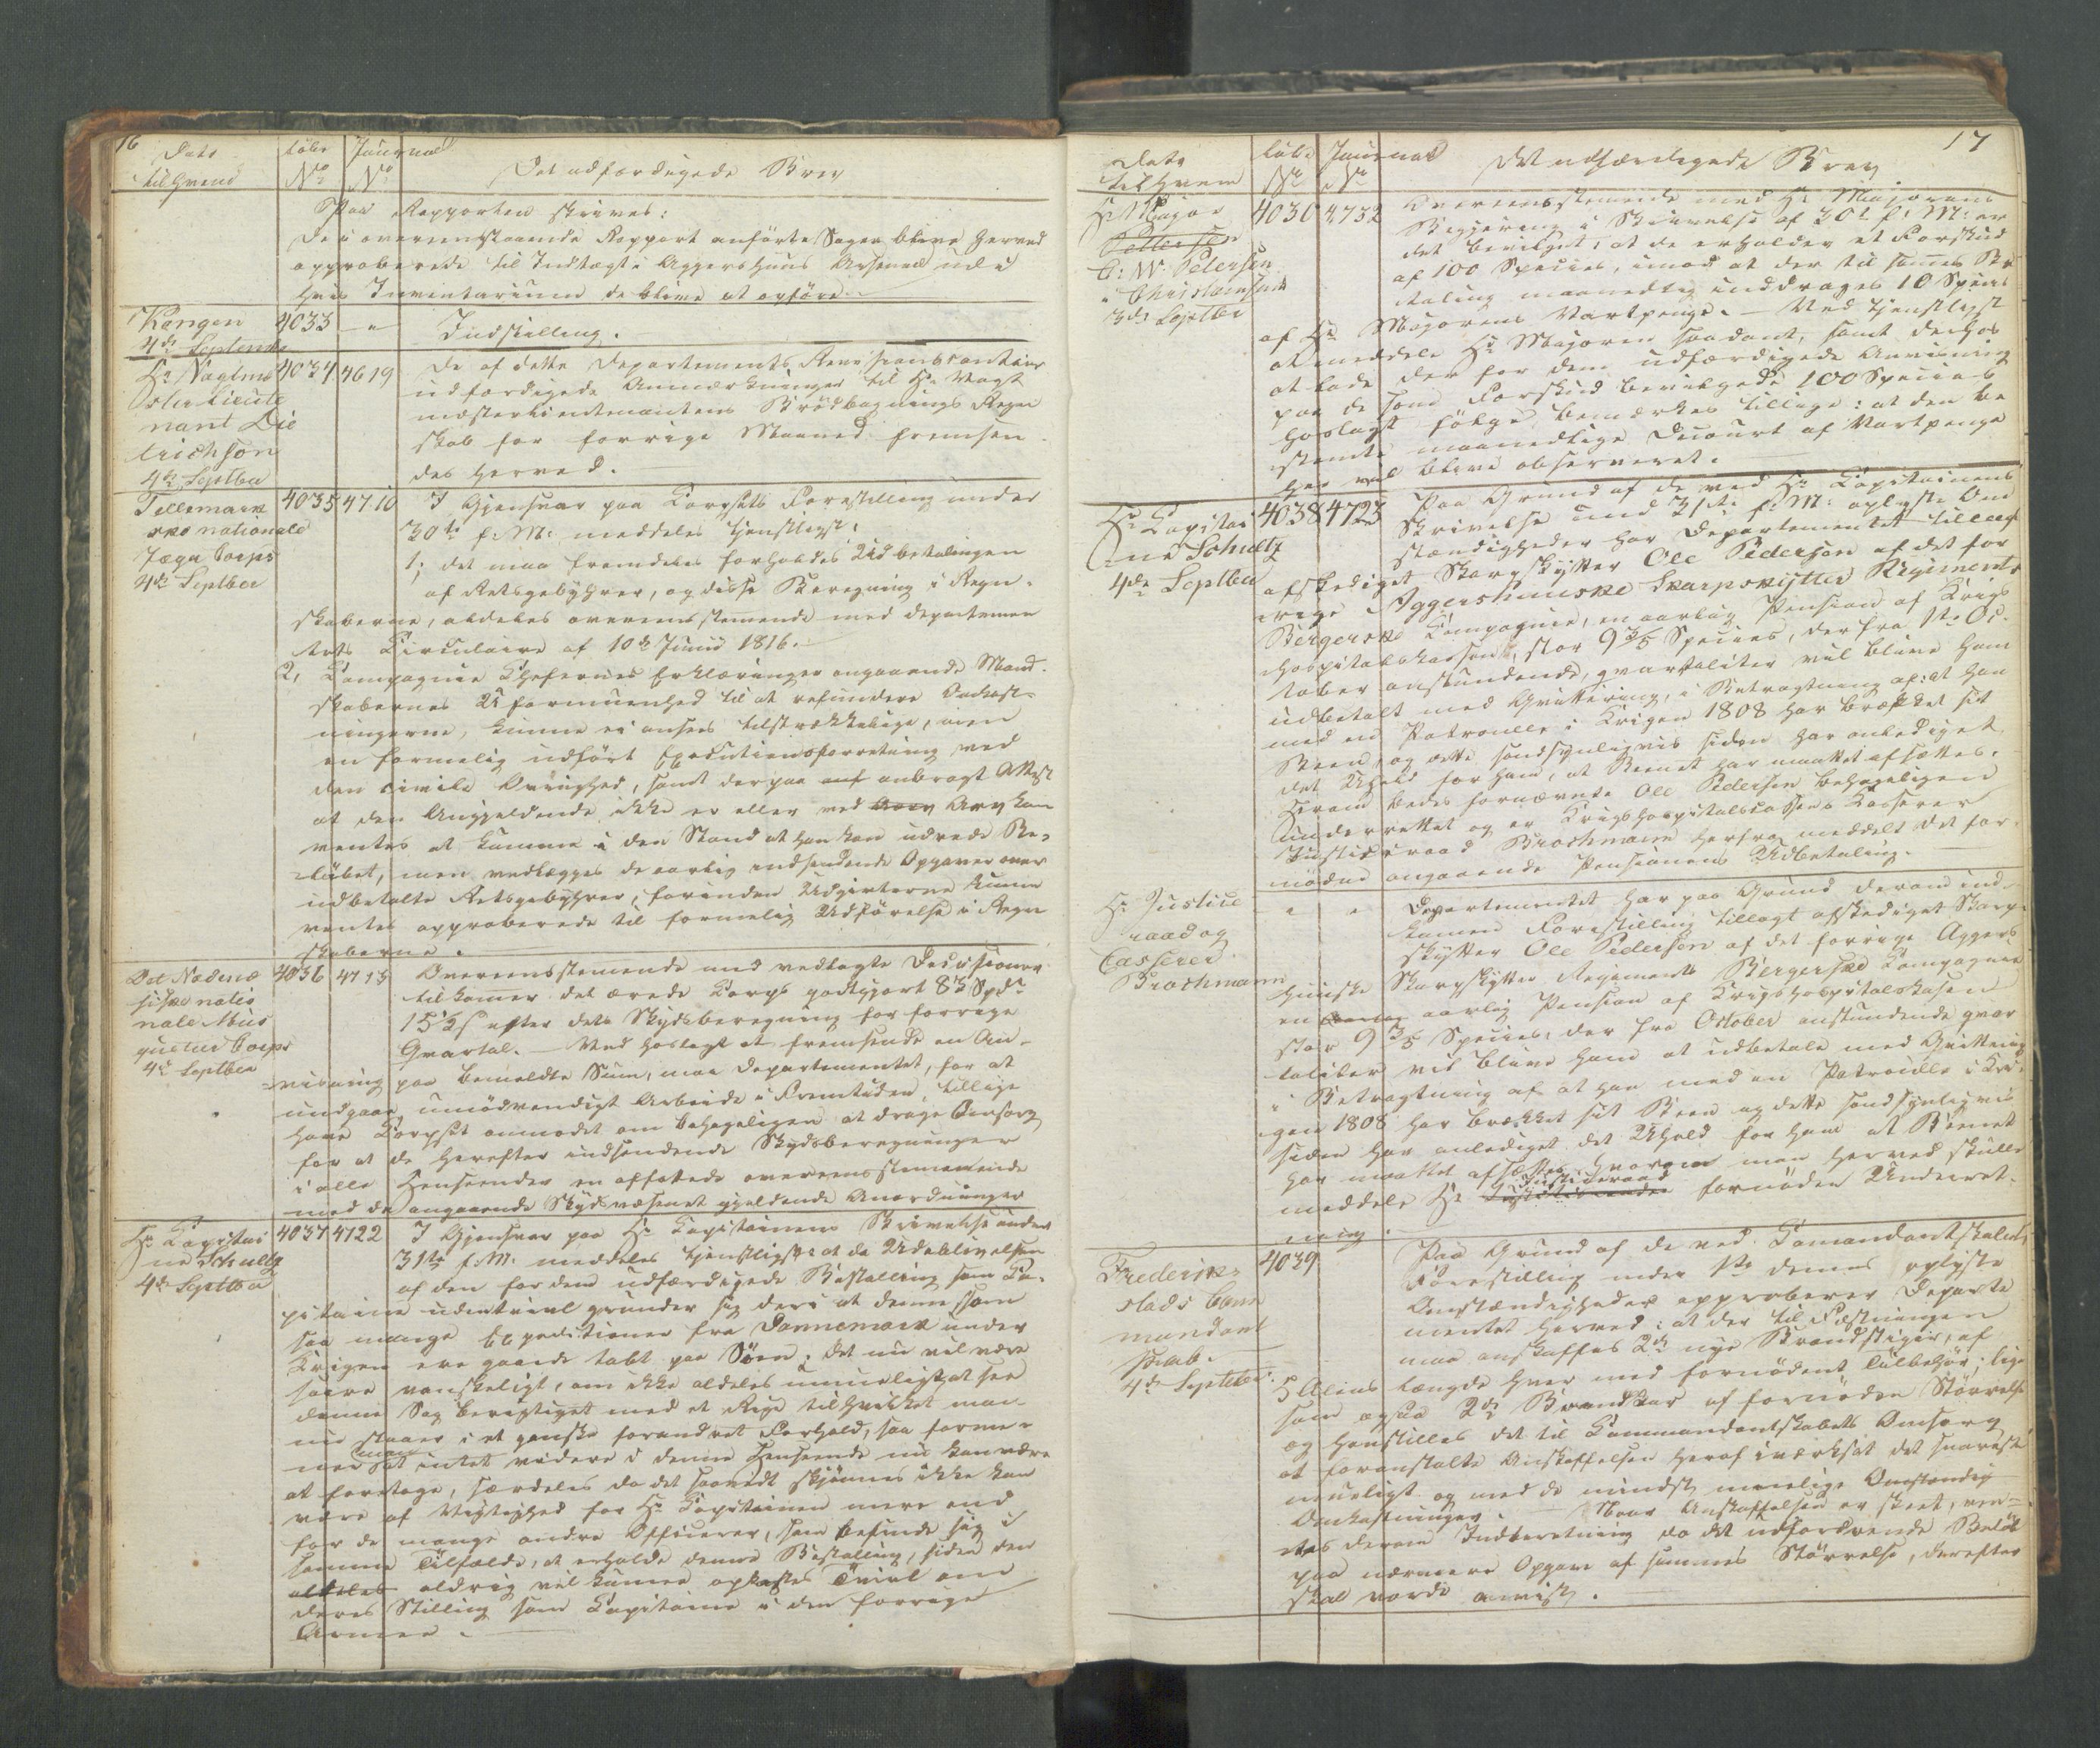 16
Dato
til Hvem
Løbe
No
Journal
No
Det udfærdigede Brev
Paa Rapporten skrives:
De i overenstaaende Rapport anførte Sager blive herved
approberede til Indtægt i Aggershuus Arsenal ud i
hvis Inventarium de blive at opføre.
Kongen
4de Septembr
4033 — "
Indstilling.
Hr Vagtme
ster Lieute
nant Die
trichson
4de Septbr
4034 4619
De af dette Departements Revisionscontoir
udfærdigede Anmærkninger til Hr Vagt
mesterlieutenantens Brødbagnings Regn
skab for forrige Maaned fremsen
des herved.
Tellemark
ske nationale
Jæger Corps
4de Septber
4035 4710
I Gjensvar paa Corpsets Forestilling under
30te f: M: meddeles tjenstligst:
1; det maa fremdeles forholdes Udbetalingen
af Retsgebyhrer, og disses Beregning i Regn-
skaberne, aldeles overeensstemmende med Departemen
tets Circulaire af 10de Junii 1816.
2, Compagnie Chefernes Erklæringer angaaende Mand-
skabernes Uformuenhed til at refundere Omkost-
ningerne, kunne ei ansees tilstrækkelige, men
en formelig udført Executionsforretning ved
den civile Øvrighed, samt derpaa anbragt Attest
at den Angjeldende ikke er eller ved Arv kan
ventes at komme i den Stand at han kan udrede Be-
løbet, men vedlægges de aarlig indsendende Opgaver over
udbetalte Retsgebyhrer, forinden Udgivterne kunne
ventes approberede til formelig Udførelse i Regn
skaberne.
Det Nædenæ
siske natio
nale Mus
queteer Corps
4de Septber
4036 4713
Overeensstemmende med vedlagte Decisioner
tilkommer det ærede Corps godtgjort 83 Spd
15½ s efter dets Skydsberegning for forrige
Qvartal. — Ved hoslagt at fremsende en An-
viisning paa bemeldte Sum, maa Departementet, for at
undgaae unødvendigt Arbeide i Fremtiden, tillige
have Corpset anmodet om behageligen at drage Omsorg
for at de herefter indsendende Skydsberegninger
i alle Henseender ere affattede overeensstemmende
med de angaaende Skydsvæsenet gjeldende Anordninger
Hr Capitai
ne Schultz
4de Septbr
4037 4722
I Gjensvar paa Hr Capitainens Skrivelse under
31te f: M: meddeles tjenstligst: at da Udeblivelsen
af den for dem udfærdigede Bestalling som Ca-
pitaine udentvivl grunder sig deri at denne som
saa mange Expeditioner fra Dannemark under
Krigen ere gaaede tabt paa Søen; det nu vil være
saare vanskeligt, om ikke aldeles umueligt, at see
denne Sag berigtiget med et Rige til hvilket man
nu staaer i et ganske forandret Forhold, saa forme-
ner man at intet videre i denne Henseende nu kan være
at foretage, særdeles da det saavidt skjønnes ikke kan
være af Vigtighed for Hr Capitainen mere end
for de mange andre Officerer, som befinde sig i
samme Tilfælde, at erholde denne Bestalling, siden der
aldeles aldrig vil kunne opkastes Tvivl om
deres Stilling som Capitaine i den forrige
Armee.
17
Dato
til hvem
Løbe
No
Journal
No
Det udfærdigede Brev
Hr Major
Pettersen
C: W. Petersen
i Christiansund
3de Septbr
4030 4732
Overeensstemmende med Hr Majorens
Begjering i Skrivelse af 30te f: M: er
det bevilget, at de erholder et Forskud
af 100 Species, imod at der til sammes Be
taling maanedlig inddrages 10 Species
af Hr Majorens Vartpenge. — Ved tjenstligst
at meddele Hr Majoren saadant, samt derhos
at lade der for dem udfærdigede Anviisning
paa de som Forskud bevilgede 100 Species
hoslagt følge bemærkes tillige: at den be
stemte maanedlige Decourt af Vartpenge
her vil blive observeret.
Hr Capitai
ne Schultz
4de Septber
4038 4723
Paa Grund af de ved Hr Capitainens
Skrivelse und 31te f: M: oplyste Om
stændigheder har Departementet tillagt
afskediget Skarpskytter Ole Pedersen af det for
rige Aggershuuske Skarpskytter Regiments
Bergerske Compagnie, en aarlig Pension af Krigs
hospitalskassen, stor 9 3/5 Species, der fra 1ste Oc-
tober anstundende, qvartaliter vil blive ham
udbetalt med Qvittering, i Betragtning af: at han
med en Patrouille i Krigen 1808 har brækket sit
Been, og dette sandsynligviis siden har anlediget
det Uheld for ham, at Beenet har maattet afsættes.
Herom bedes fornævnte Ole Pedersen behageligen
underrettet og er Krigshospitalscassens Casserer
Justitsraad Brochmann herfra meddelt det for
nødne angaaende Pensionens Udbetaling.
Hr Justice
raad og
Casserer
Brochmann
" "
Departementet har paa Grund derom ind-
kommen Forestilling tillagt afskediget Skarp-
skytter Ole Pedersen af det forrige Aggers
huuske Skarpskytter Regiments Bergerske Compagnie
en aarlig Pension af Krigshospitalskassen
stor 9 3/5 Species, der fra October anstundende qvar
taliter vil blive ham at udbetale med Qvittering
i Betragtning af at han med en Patrouille i Kri-
gen 1808 har brækket sit Been og dette sandsynligviis
siden har anlediget det Uheld for ham at Beenet
har maattet afsættes, hvorom man herved skulle
meddele Hr Justiceraad fornøden Underret-
ning.
Frederiks
stads Com
mandant
skab.
4de Septbr.
4039
Paa Grund af de ved Comandantskabets
Forestilling under 1ste dennes oplyste
Omstændigheder approberer Departe
mentet herved: at der til Fæstningen
maa anskaffes 2de nye Brandstiger, af
5 Alens Længde hver med fornødent Tilbehør; lige
som ogsaa 2de Brandkar af fornøden Størrelse
og henstilles det til Commandantskabets Omsorg
at foranstalte Anskaffelsen heraf iværksat det snarest
mueligt og med de mindst muelige
Omkostninger. Naar Anskaffelsen er skeet, ven-
tes derom Indberetning da det udfordrende Beløb
paa nærmere Opgave af sammes Størrelse, derefter
skal vorde anvist.